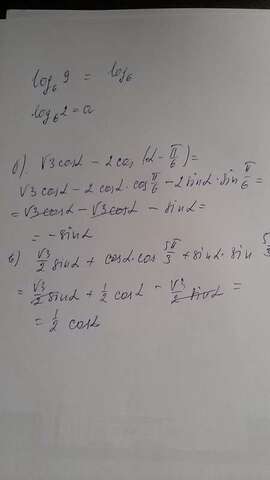 log₆ 9 = log₆
log₆ 2 = a
б) √3 cosα - 2 cos (α - π/6) =
√3 cosα - 2 cosα · cos π/6 - 2 sinα · sin π/6 =
= √3 cosα - √3 cosα - sinα =
= - sinα
в) √3/2 sinα + cosα · cos 5π/3 + sinα · sin 5
= √3/2 sinα + 1/2 cosα - √3/2 sinα =
= 1/2 cosα